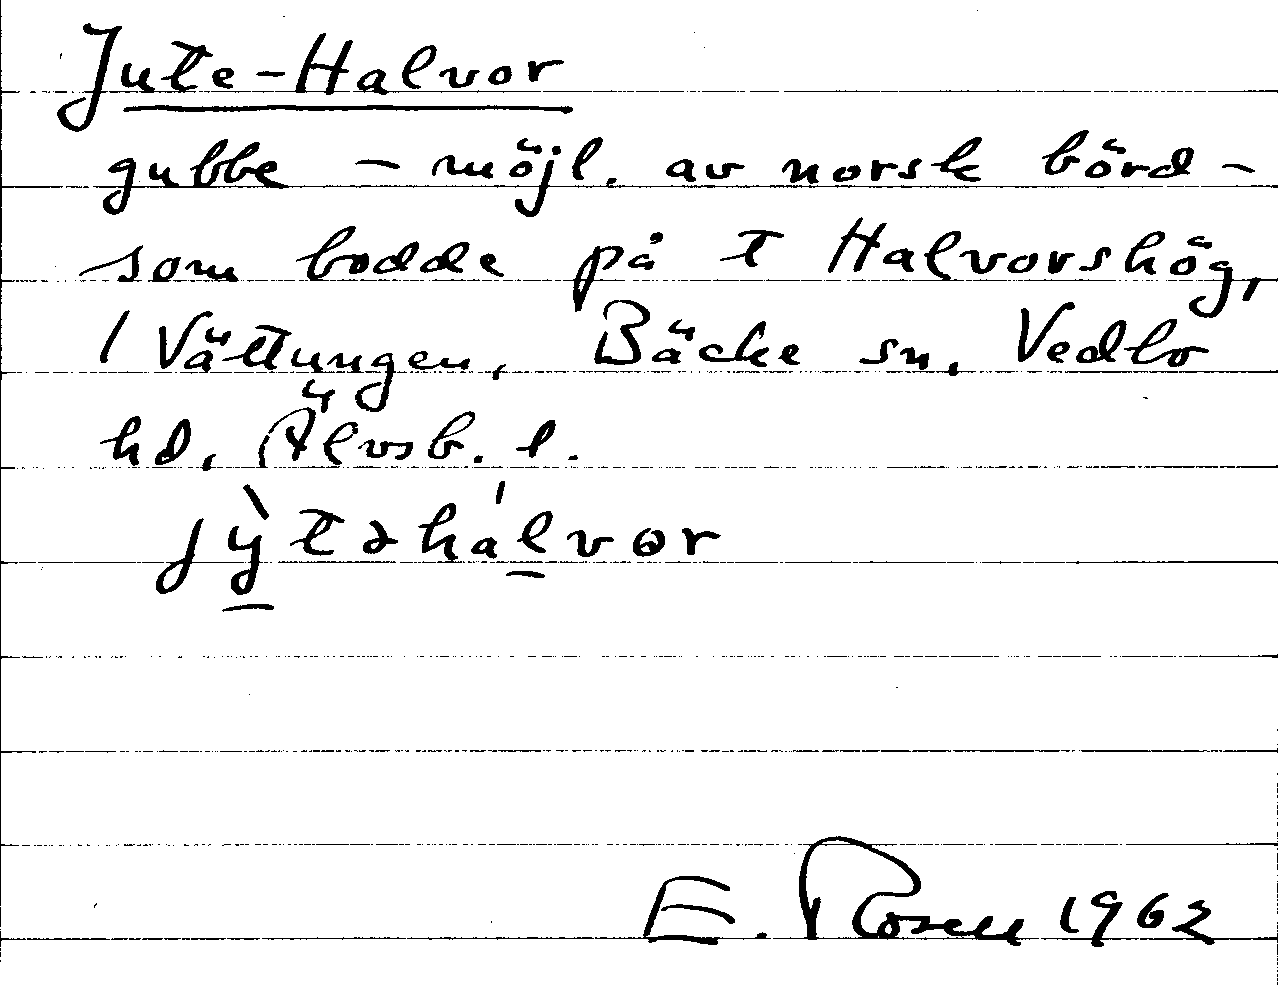 Jute-Halvor
gubbe – möjl. av norsk börd –
som bodde på t Halvorshög,
l Vättungen, Bäcke sn, Vedbo
hd, Älvsb. l.
jỳtəha'lvor
E. Rosell 1962